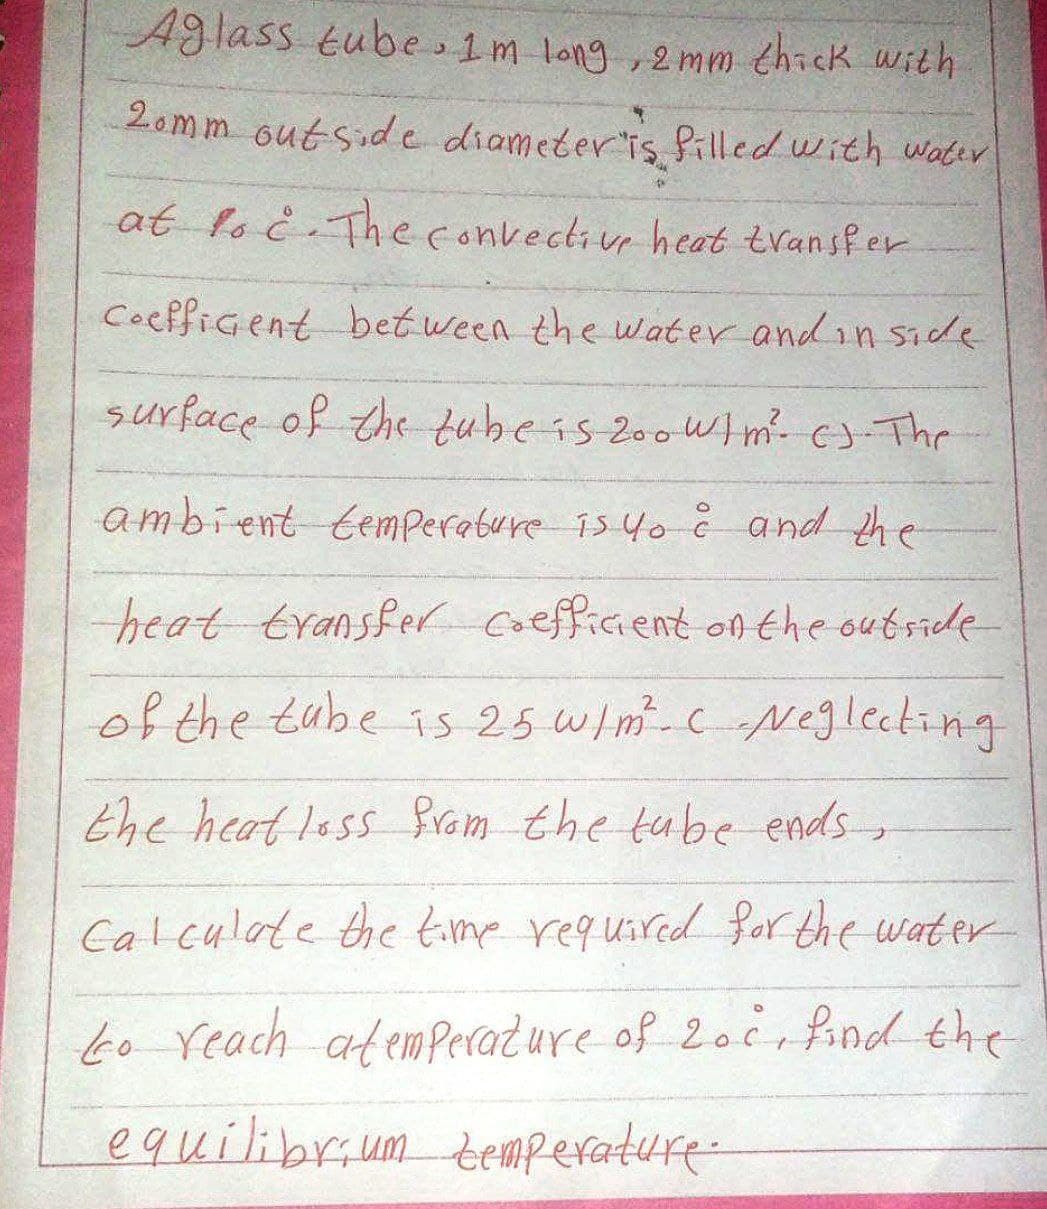 Aglass tube, 1m long, 2mm thick with
20mm outside diameter is filled with water
at c°. The convective heat transfer
coefficient between the water and in side
surface of the tube is 200 W/m². c). The
ambient temperature is 40 c° and the
heat transfer coefficient on the outside
of the tube is 25 w/m². c. Neglecting
the heat loss from the tube ends,
Calculate the time required for the water
to reach atemperature of 20c°, find the
equilibrium temperature.